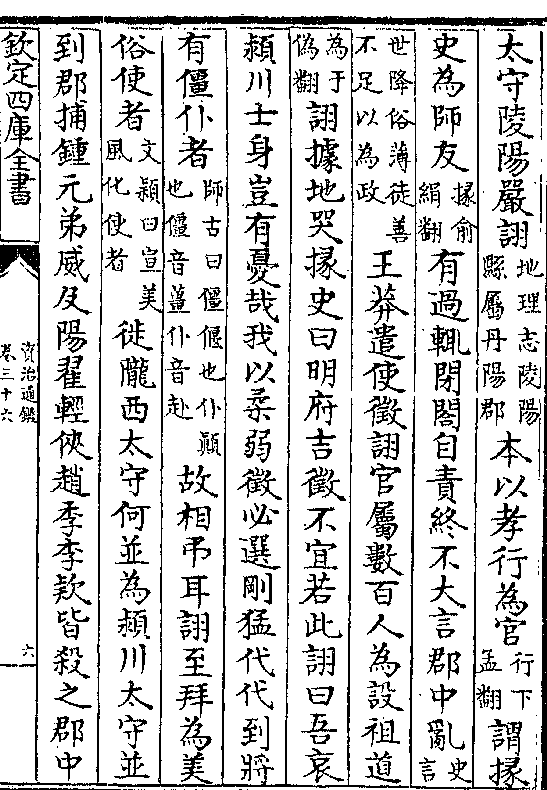 太守陵陽嚴詡地理志陵陽縣屬丹陽郡本以孝行為官行下孟翻謂掾
史為師友掾俞絹翻有過輒閉閤自責終不大言郡中亂史言
世降俗薄徒善不足以為政王莽遣使徵詡官屬數百人為設祖道
為于偽翻詡據地哭掾史曰明府吉徵不宜若此詡曰吾哀
潁川士身豈有憂哉我以柔弱徵必選剛猛代代到將
有僵仆者師古曰僵偃也仆顚也僵音薑仆音赴故相弔耳詡至拜為美
俗使者文穎曰宣美風化使者徙隴西太守何並為潁川太守並
到郡捕鍾元弟威及陽翟輕俠趙季李欵皆殺之郡中
欽定四庫全書
資治通鑑
卷三十六
六